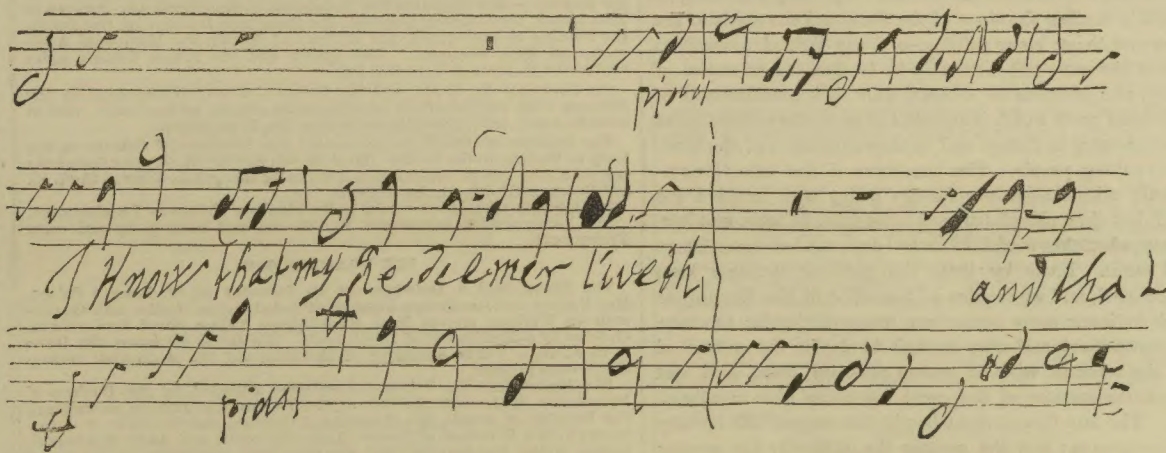 pianu
I Know that my Redeemer liveth, and tha
pianu